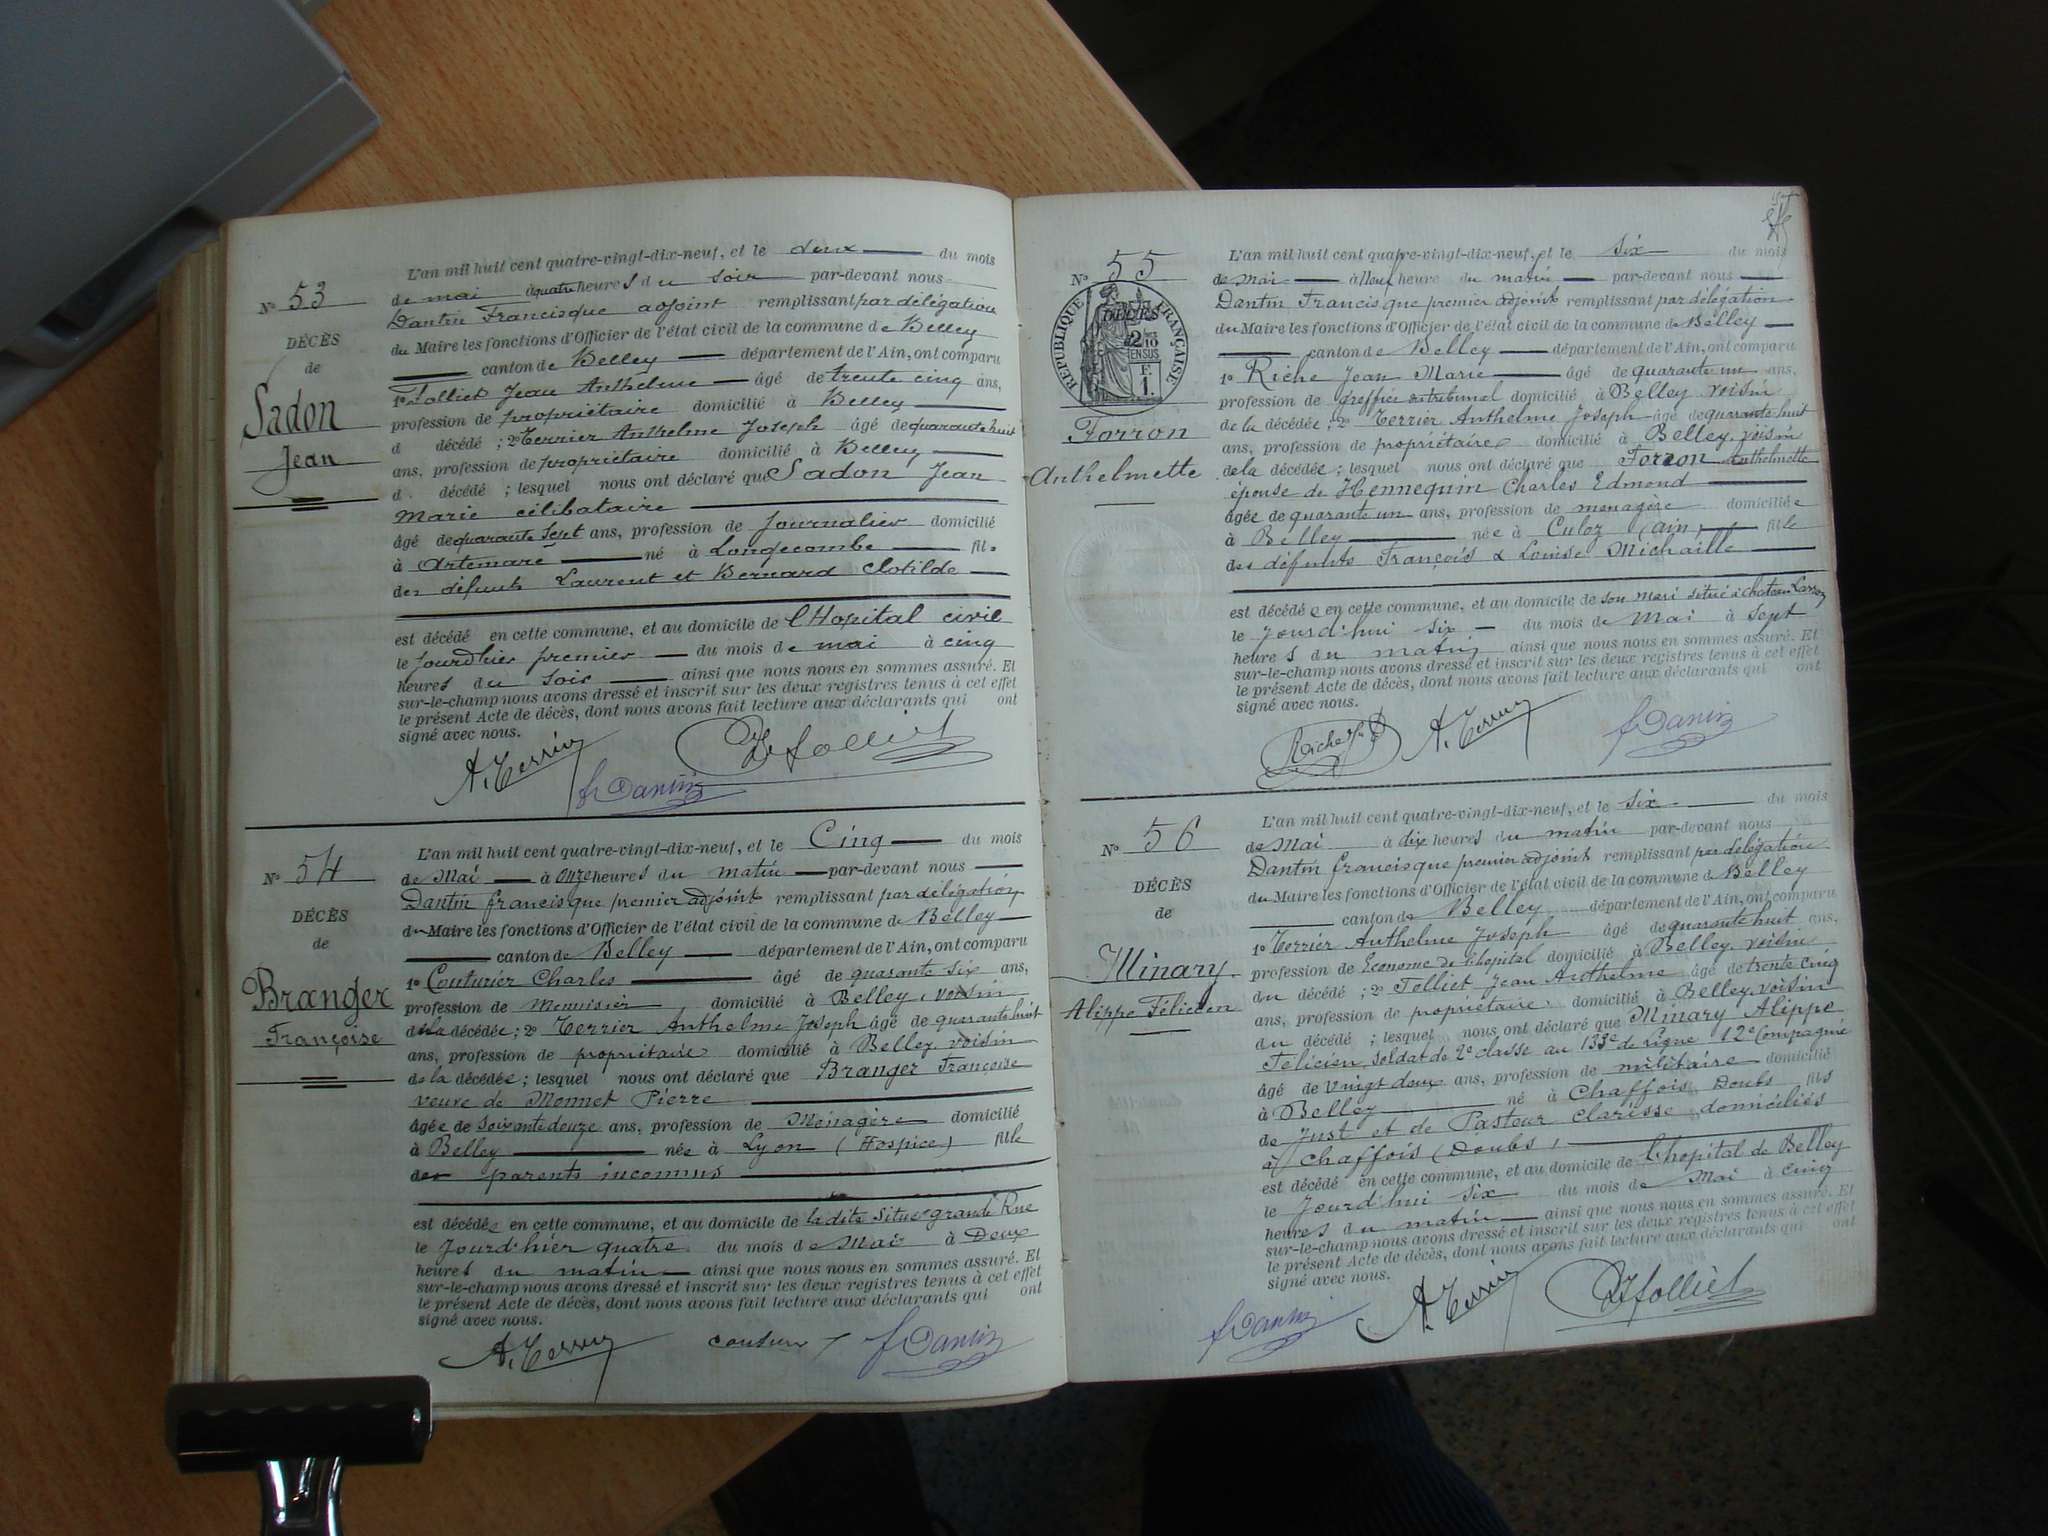 N° 53
DÉCÈS
de
Sadon
Jean
L'an mil huit cent quatre-vingt-dix-neuf, et le deux du mois
de mai à quatre heures du soir par-devant nous
Dantin Francisque adjoint remplissant par délégation
du Maire les fonctions d'Officier de l'état civil de la commune de Belley
canton de Belley département de l'Ain, ont comparu
1° Folliet Jean Anthelme âgé de trente cinq ans,
profession de propriétaire domicilié à Belley
d décédé ; 2° Terrier Anthelme Joseph âgé de quarante huit
ans, profession de propriétaire domicilié à Belley
d décédé ; lesquel nous ont déclaré que Sadon Jean
Marie célibataire
âgé de quarante sept ans, profession de Journalier domicilié
à Artemare né à Longecombe fils
des défunts Laurent et Bernard Clotilde
est décédé en cette commune, et au domicile de l'Hopital civil
le jourd'hier premier du mois de mai à cinq
heures du soir ainsi que nous nous en sommes assuré. Et
sur-le-champ nous avons dressé et inscrit sur les deux registres tenus à cet effet
le présent Acte de décès, dont nous avons fait lecture aux déclarants qui ont
signé avec nous.
A. Terrier Folliet
f Dantin
N° 54
DÉCÈS
de
Branger
Françoise
L'an mil huit cent quatre-vingt-dix-neuf, et le Cinq du mois
de Mai à onze heures du matin par-devant nous
Dantin francisque premier adjoint remplissant par délégation
du Maire les fonctions d'Officier de l'état civil de la commune de Belley
canton de Belley département de l'Ain, ont comparu
1° Couturier Charles âgé de quarante six ans,
profession de Menuisier domicilié à Belley, voisin
de la décédée ; 2° Terrier Anthelme Joseph âgé de quarante huit
ans, profession de propriétaire domicilié à Belley, voisin
de la décédée ; lesquel nous ont déclaré que Branger Françoise
veuve de Monnet Pierre
âgée de soixante douze ans, profession de Ménagère domicilié
à Belley née à Lyon (Hospice) fille
de parents inconnus
est décédée en cette commune, et au domicile de la dite situé grande Rue
le Jourd'hier quatre du mois de Mai à Deux
heures du matin ainsi que nous nous en sommes assuré. Et
sur-le-champ nous avons dressé et inscrit sur les deux registres tenus à cet effet
le présent Acte de décès, dont nous avons fait lecture aux déclarants qui ont
signé avec nous.
A. Terrier f Dantin
N° 55
RÉPUBLIQUE FRANÇAISE
DÉCÈS
2/10
EN SUS
F.
1.
Forron
Anthelmette
L'an mil huit cent quatre-vingt-dix-neuf, et le six du mois
de Mai à heure du matin par-devant nous
Dantin Francisque premier adjoint remplissant par délégation
du Maire les fonctions d'Officier de l'état civil de la commune de Belley
canton de Belley département de l'Ain, ont comparu
1° Riche Jean Marie âgé de quarante un ans,
profession de greffier du tribunal domicilié à Belley voisin
de la décédée ; 2° Terrier Anthelme Joseph âgé de quarante huit
ans, profession de propriétaire domicilié à Belley, voisin
de la décédée ; lesquel nous ont déclaré que Forron Anthelmette
épouse de Hennequin Charles Edmond
âgée de quarante un ans, profession de menagère domiciliée
à Belley née à Culoz (ain) fille
des défunts François & Louise Michaille
est décédée en cette commune, et au domicile de son mari situé à chateau
le Jourd'hui six du mois de Mai à sept
heures du matin ainsi que nous nous en sommes assuré. Et
sur-le-champ nous avons dressé et inscrit sur les deux registres tenus à cet effet
le présent Acte de décès, dont nous avons fait lecture aux déclarants qui ont
signé avec nous.
Riche A. Terrier f Dantin
N° 56
DÉCÈS
de
Minary
Alippe Félicien
L'an mil huit cent quatre-vingt-dix-neuf, et le six du mois
de Mai à dix heures du matin par-devant nous
Dantin francisque premier adjoint remplissant par délégation
du Maire les fonctions d'Officier de l'état civil de la commune de Belley
canton de Belley département de l'Ain, ont comparu
1° Terrier Anthelme Joseph âgé de quarante huit ans,
profession de Econome de l'hopital domicilié à Belley, voisin
du décédé ; 2° Folliet Jean Anthelme âgé de trente cinq
ans, profession de propriétaire domicilié à Belley, voisin
du décédé ; lesquel nous ont déclaré que Minary Alippe
Félicien, soldat de 2e classe au 133e de Ligne 12e Compagnie
âgé de vingt deux ans, profession de militaire domicilié
à Belley né à Chaffois Doubs fils
de Just et de Pasteur Clarisse domiciliés
à Chaffois (Doubs)
est décédé en cette commune, et au domicile de l'hopital de Belley
le Jourd'hui six du mois de Mai à cinq
heures du matin ainsi que nous nous en sommes assuré. Et
sur-le-champ nous avons dressé et inscrit sur les deux registres tenus à cet effet
le présent Acte de décès, dont nous avons fait lecture aux déclarants qui ont
signé avec nous.
f Dantin A. Terrier Folliet